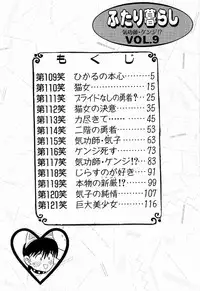 ふたり暮らし
気功師・ケンジ!?
VOL.9
もくじ
第109笑 ひかるの本心……5
第110笑 猫女……15
第111笑 プライドなしの勇者?…25
第112笑 猫女の決意……35
第113笑 力尽きて……45
第114笑 二階の勇者……53
第115笑 気功師・気子……63
第116笑 ケンジ死す……73
第117笑 気功師・ケンジ!?…83
第118笑 じらすのが好き…91
第119笑 本物の新厳!?…99
第120笑 気子の純情……107
第121笑 巨大美少女……116